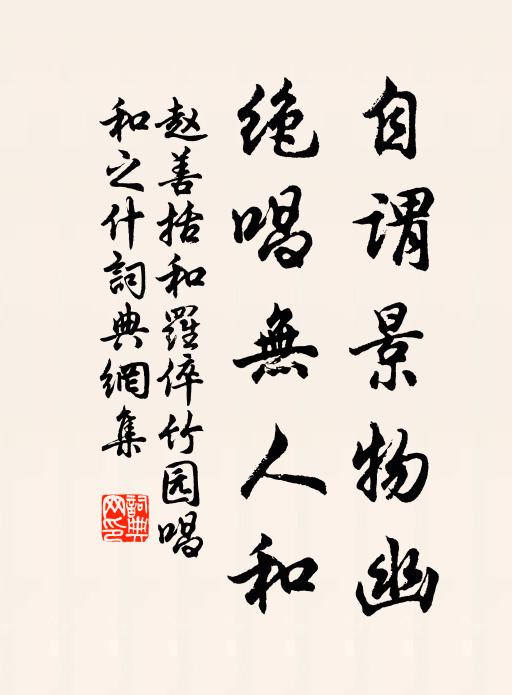 自谓景物幽
绝唱無人和
赵善括和羅倅竹园唱
和之什詞典網集
詞典網印